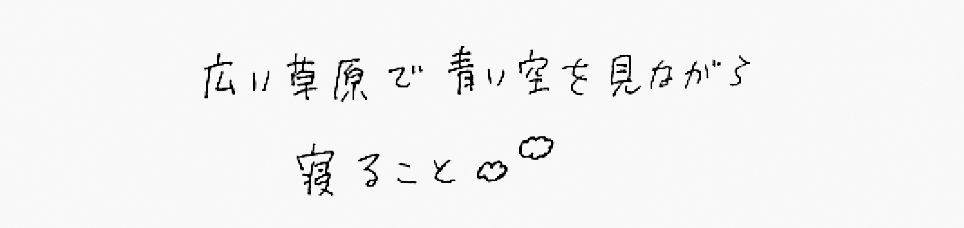 広い草原で青い空を見ながら
寝ること